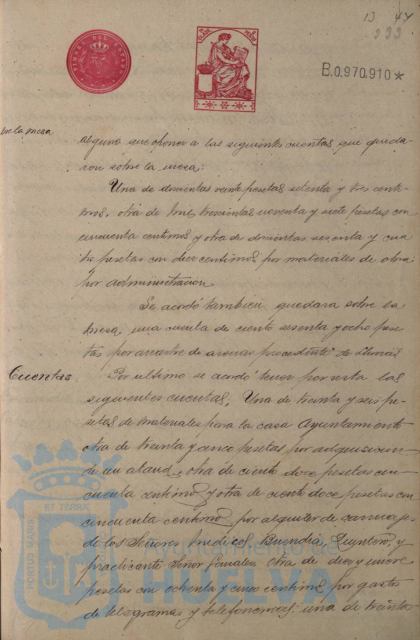 13 44
333
B.0.970.910*
en la mesa
alguno que oponer a las siguientes cuentas que queda-
ron sobre la mesa:
Una de doscientas veinte pesetas setenta y tres centi-
mos, otra de mil trescientas noventa y siete pesetas con
cincuenta centimos y otra de doscientas sesenta y cua
tro pesetas con doce centimos por materiales de obras
por administracion
Se acordó tambien quedara sobre la
mesa, una cuenta de ciento sesenta y ocho pese
tas por arrastre de arenas procedente de
Cuentas
Por ultimo se acordó tener por vista las
siguientes cuentas. Una de treinta y seis pe-
setas de materiales para la casa Ayuntamiento
otra de treinta y cinco pesetas por adquisicion
de un ataud, otra de ciento doce pesetas cin-
cuenta centimos y otra de ciento doce pesetas con
cincuenta centimos por alquiler de carruajes
de los Señores medicos, Buendia, Quintero, y
practicante Señor otra de diez y nueve
pesetas con ochenta y cinco centimos por gastos
de telegramas y telefonemas: una de treinta
PORTUS MARIS
ET TERRÆ
Ayuntamiento de
HUELVA